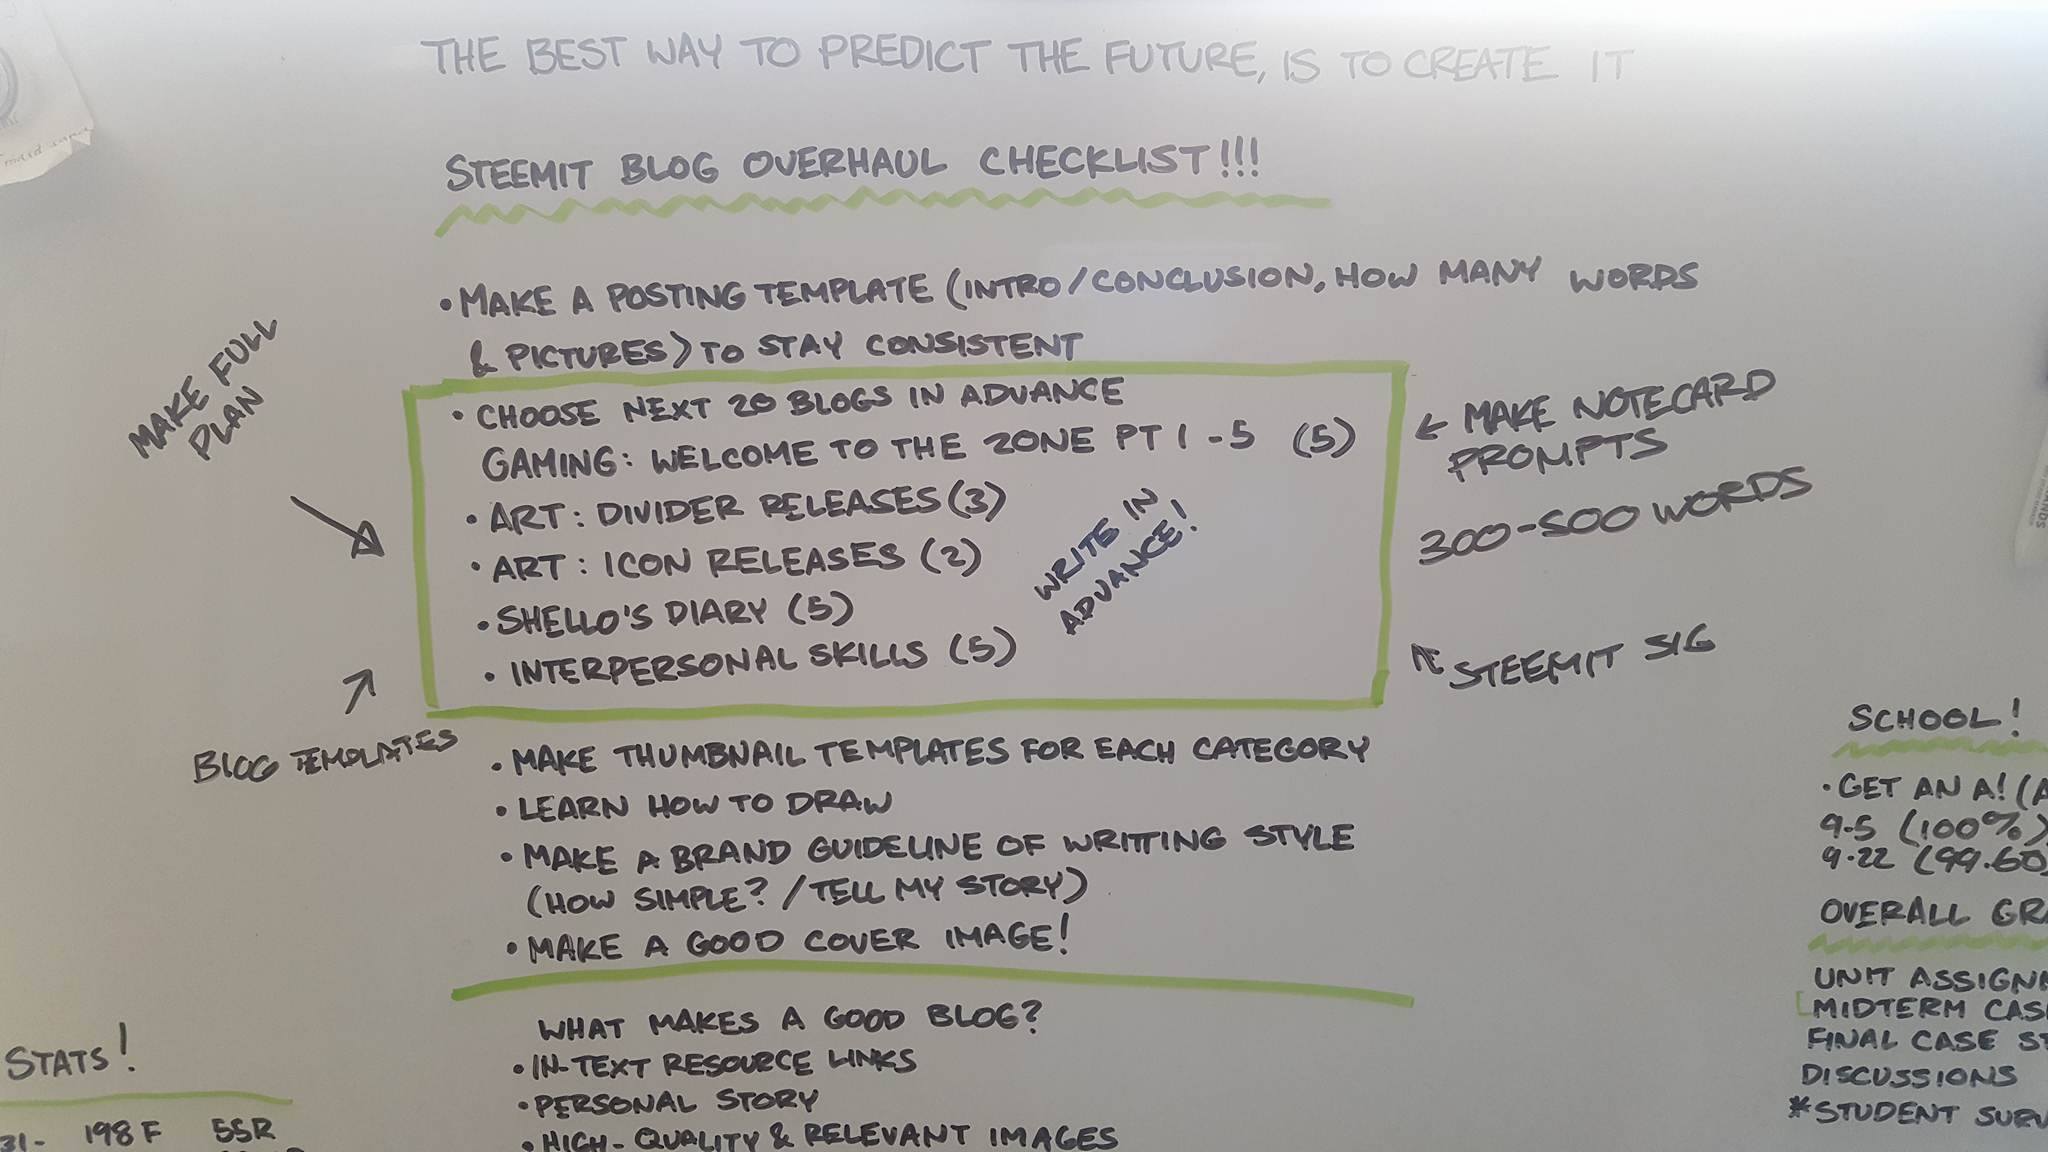 THE BEST WAY TO PREDICT THE FUTURE, IS TO CREATE IT
STEEMIT BLOG OVERHAUL CHECKLIST!!!
• MAKE A POSTING TEMPLATE (INTRO/CONCLUSION, HOW MANY WORDS
& PICTURES) TO STAY CONSISTENT
MAKE FULL
PLAN
• CHOOSE NEXT 20 BLOGS IN ADVANCE
GAMING: WELCOME TO THE ZONE PT 1-5 (5)
• ART: DIVIDER RELEASES (3)
• ART: ICON RELEASES (2)
• SHELLO'S DIARY (5)
• INTERPERSONAL SKILLS (5)
WRITE IN
ADVANCE!
← MAKE NOTECARD
PROMPTS
300-500 WORDS
STEEMIT SIG
BLOG TEMPLATES
• MAKE THUMBNAIL TEMPLATES FOR EACH CATEGORY
• LEARN HOW TO DRAW
• MAKE A BRAND GUIDELINE OF WRITTING STYLE
(HOW SIMPLE? / TELL MY STORY)
• MAKE A GOOD COVER IMAGE!
WHAT MAKES A GOOD BLOG?
• IN-TEXT RESOURCE LINKS
• PERSONAL STORY
• HIGH-QUALITY & RELEVANT IMAGES
STATS!
31- 198 F 55R
SCHOOL!
• GET AN A! (A
9-5 (100%)
9-22 (99.60
OVERALL GRA
UNIT ASSIGN
MIDTERM CAS
FINAL CASE ST
DISCUSSIONS
*STUDENT SURV